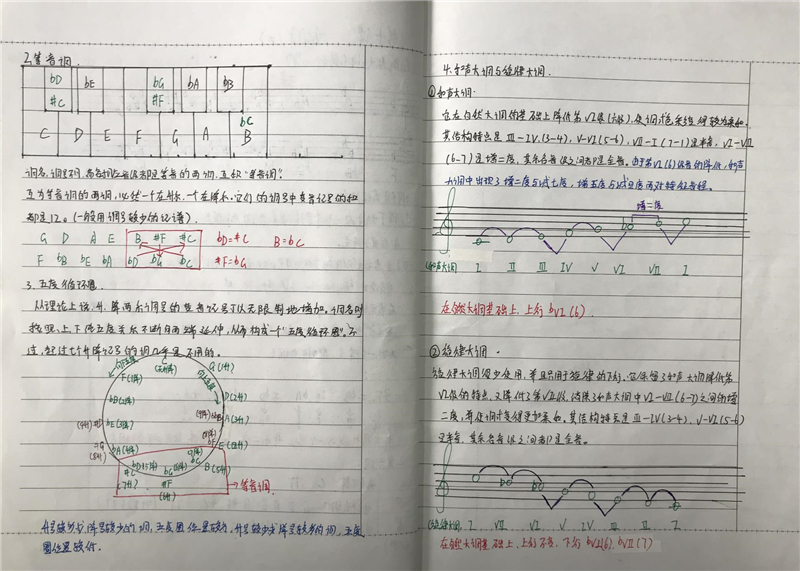 2.等音调.
bD bE bG bA bB
#C #F bC
C D E F G A B
调名、调号不同,
互为等音调的两调,必然一个在升系.一个在降系.它们的调号中变音记号的和
都是12。(一般用调号较少的记谱).
G D A E B #F #C bD=#C B=bC
F bB bE bA bD bG bC #F=bG
3. 五度循环圈.
从理论上说,升、降两系调号的变音记号可以无限制地增加,调名则
按照上、下纯五度关系不断向两端延伸,从而构成一个"五度循环圈"。不
过,超过七个升降记号的调几乎是不用的。
C
G(1升)
D(2升)
A(3升)
E(4升)
B(5升)
#F
(6升)
#C
(7升)
F(1降)
bB(2降)
bE(3降)
bA(4降)
bD(5降)
bG(6降)
bC
等音调
升号较多或降号较少的调,五度圈位置较高.升号较少或降号较多的调,五度
圈位置较低。
4.和声大调与旋律大调.
①和声大调.
它在自然大调的基础上降低第VI级(六级),使调式色彩变得较为柔和.
其结构特点是III-IV(3-4), V-VI(5-6), VII-I(7-1)是半音, VI-VII
(6-7)是增二度,其余各音级之间都是全音。由于第VI(6)级音的降低,和声
大调中出现了增二度与减七度,增五度与减四度两对特征音程。
增二度
b
和声大调: I II III IV V VI VII I
在自然大调基础上,上行bVI(6)
②旋律大调.
旋律大调很少使用,并且只用于旋律的下行,它保留了和声大调降低第
VI级的特点,又降低了第VII级,消除了和声大调中VI-VII(6-7)之间的增
二度,并使调式变得更加柔和,其结构特点是III-IV(3-4), V-VI(5-6)
是半音,其余各音级之间都是全音。
b b
旋律大调: I VII VI V IV III II I
在自然大调基础上,上行不变,下行bVI(6),bVII(7)